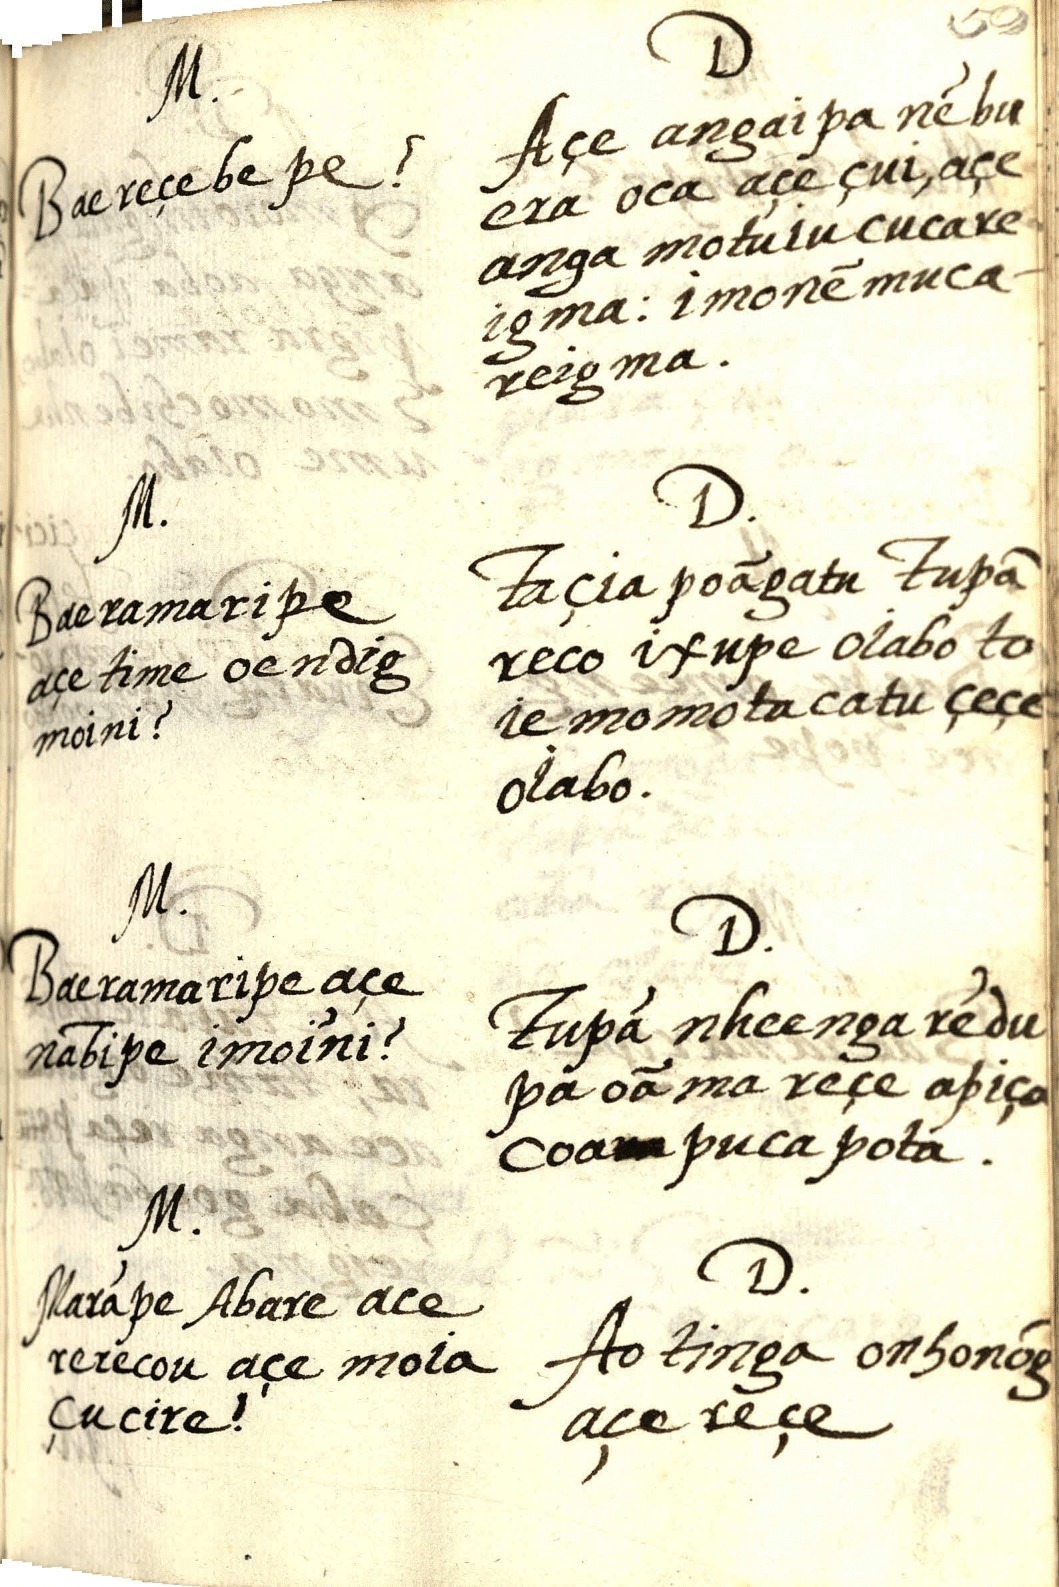 50
M.
Bae reçe be pe?
D
Açe angaipa nẽ bu
era oca açe çui, açe
anga motuiu cucare
igma: i monẽ muca-
reigma.
M.
Baeramaripe
açe time oendig
moini?
D.
Taçia poãgatu Tupã
reco ixupe oiabo to
ie momota catu çeçe
oiabo.
M.
Baeramaripe açe
nãbipe imoini?
D.
Tupã nheenga rẽdu
pa oã ma reçe apiça
coa puca pota.
M.
Marãpe Abare ace
rerecou açe moia
çucire?
D.
Ao tinga onhonõg
açe reçe